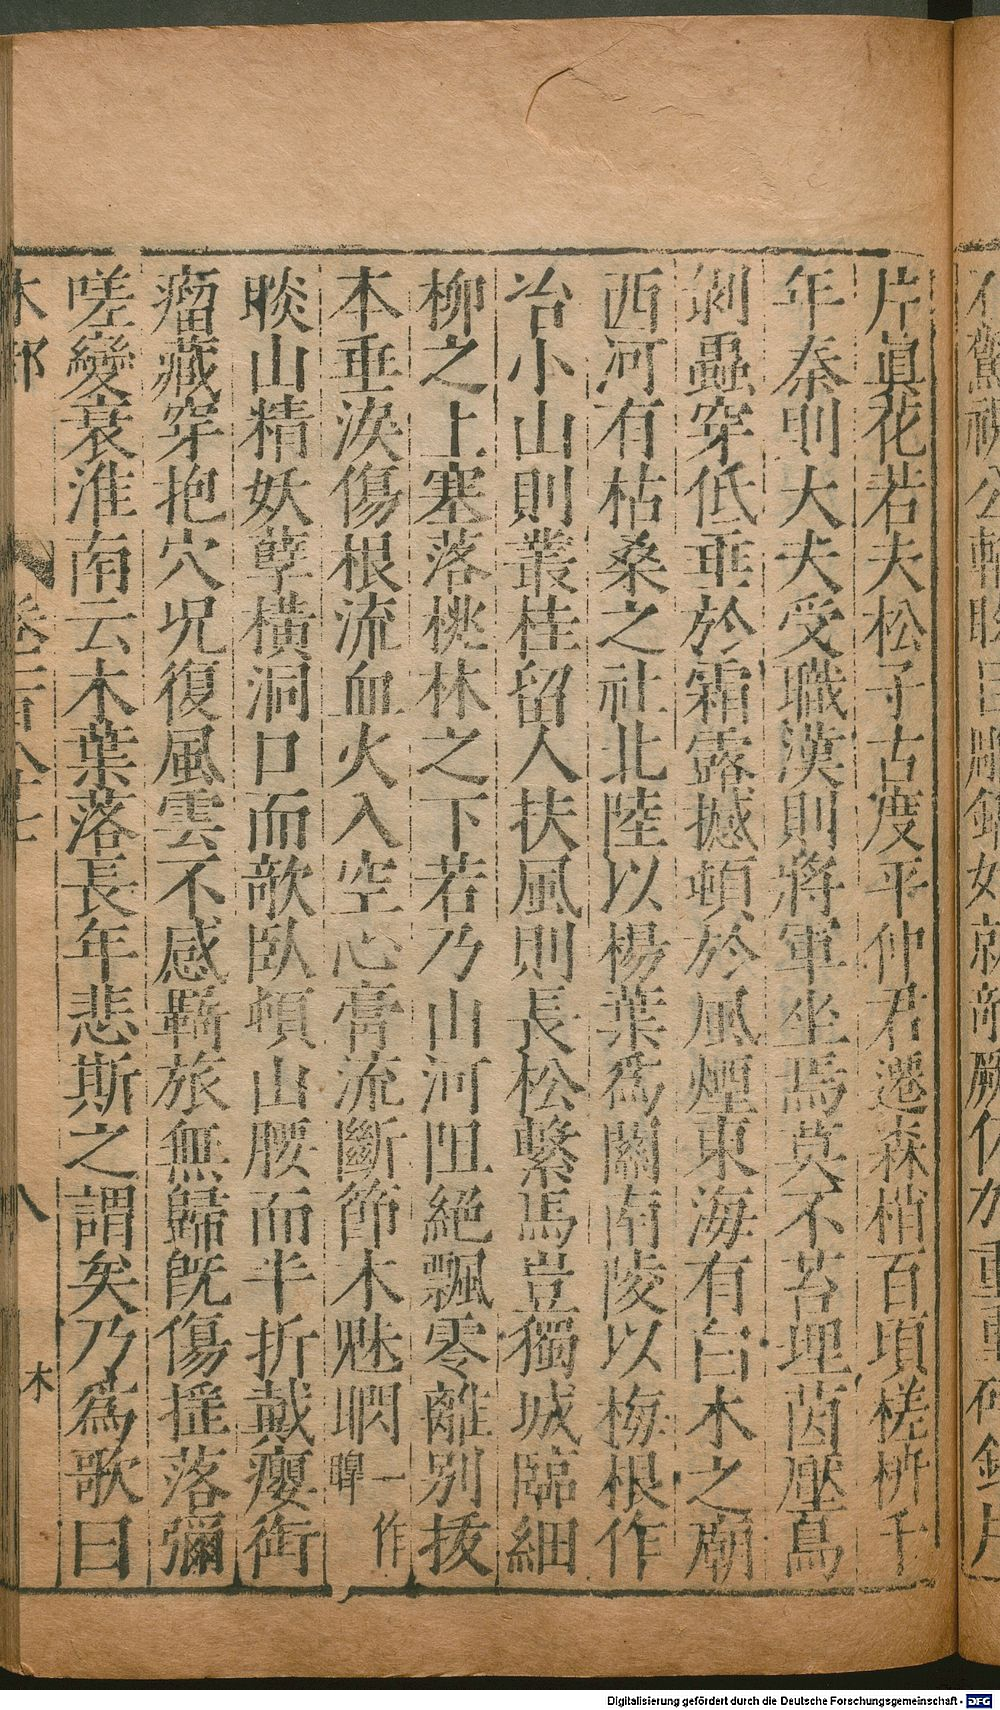 石驚視公輸眩目雕鐫始就剞劂仍加重重碎錦片
片眞花若夫松子古度平仲君遷森梢百頃槎枿千
年秦則大夫受職漢則將軍坐焉莫不苔埋菌壓鳥
剝蟲穿低垂於霜露撼頓於風煙東海有白木之廟
西河有枯桑之社北陸以楊葉爲關南陵以梅根作
冶小山則叢桂留人扶風則長松繫馬豈獨城臨細
柳之上塞落桃林之下若乃山河阻絕飄零離別拔
本垂淚傷根流血火入空心膏流斷節木魅一作睥
睒山精妖孽橫洞口而欹臥頓山腰而半折戴癭銜
瘤藏穿抱穴况復風雲不感羇旅無歸旣傷搖落彌
嗟變衰淮南云木葉落長年悲斯之謂矣乃爲歌曰
木部 卷二百八十七 八 木
Digitalisierung gefördert durch die Deutsche Forschungsgemeinschaft - DFG